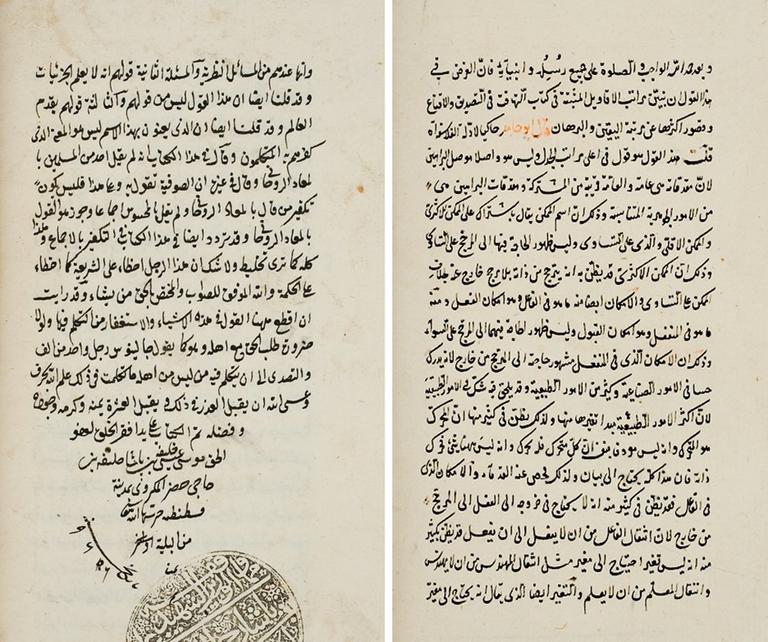 وبعد حمد الله الواجب والصلوة على جميع رسله وانبيائه فان الغرض في
هذا القول ان نبين مراتب الاقاويل المثبتة في كتاب التهافت في التصديق والاقناع
وقصور اكثرها عن مرتبة اليقين والبرهان قال ابو حامد حاكيا لادلة الفلاسفة
قلت هذا القول هو قول في اعلى مراتب الجدل وليس هو واصلا موصل البراهين
لان مقدماته هي عامة والعامة قريبة من المشتركة ومقدمات البراهين هي
من الامور الجوهرية المتناسبة وذلك ان اسم الممكن يقال باشتراك على الممكن الاكثري
والممكن الاقلي والذي على التساوي وليس ظهور الحاجة فيها الى المرجح على التساوي
وذلك ان الممكن الاكثري قد يظن به انه يترجح من ذاته لا بمرجح خارج عنه بخلاف
الممكن على التساوي والامكان ايضا منه ما هو في الفاعل وهو امكان الفعل ومنه
ما هو في المنفعل وهو امكان القبول وليس ظهور الحاجة فيهما الى المرجح على السواء
وذلك ان الامكان الذي في المنفعل مشهور حاجته الى المرجح من خارج لانه يدرك
حسا في الامور الصناعية وكثير من الامور الطبيعية وقد يلحق فيه شك في الامور الطبيعية
لان اكثر الامور الطبيعية مبدأ تغيرها منها ولذلك يظن في كثير منها ان المحرك
هو المتحرك وانه ليس معروفا بنفسه ان كل متحرك فله محرك وانه ليس ههنا شيء يحرك
ذاته فان هذا كله يحتاج الى بيان ولذلك فحص عنه القدماء واما الامكان الذي
في الفاعل فقد يظن في كثير منه انه لا يحتاج في خروجه الى الفعل الى المرجح
من خارج لان انتقال الفاعل من ان لا يفعل الى ان يفعل قد يظن بكثير
منه انه ليس تغيرا يحتاج الى مغير مثل انتقال المهندس من ان لا يهندس
وانتقال المعلم من ان لا يعلم والتغير ايضا الذي يقال انه يحتاج الى مغير
وانها عندهم من المسائل النظرية والمسئلة الثانية قولهم انه لا يعلم الجزئيات
وقد قلنا ايضا ان هذا القول ليس من قولهم والثالثة قولهم بقدم
العالم وقد قلنا ايضا ان الذي يعنون بهذا الاسم ليس هو المعنى الذي
كفرهم به المتكلمون وقال في هذا الكتاب انه لم يقل احد من المسلمين با
لمعاد الروحاني وقال في غيره ان الصوفية تقول به وعلى هذا فليس يكون
تكفير من قال بالمعاد الروحاني ولم يقل بالمحسوس اجماعا وجوز هو القول
بالمعاد الروحاني وقد تردد ايضا في هذا الكتاب في التكفير بالاجماع وهذا
كله كما ترى تخليط ولا شك ان هذا الرجل اخطاء على الشريعة كما اخطاء
على الحكمة والله الموفق للصواب والمختص بالحق من يشاء وقد رايت
ان اقطع ههنا القول في هذه الاشياء والاستغفار من التكلم فيها ولولا
ضرورة طلب الحق مع اهله وهو كما يقول جالينوس رجل واحد من الف
والتصدي الى ان يتكلم فيه من ليس من اهله ما تكلمت في ذلك علم الله بحرف
وعسى الله ان يقبل العذر في ذلك ويقيل العثرة بمنه وكرمه وجوده
وفضله تم الكتاب على يد افقر الخلق لعفو
الحق موسى
حاجي خضر بمدينة
قسطنطنية
من ليلة